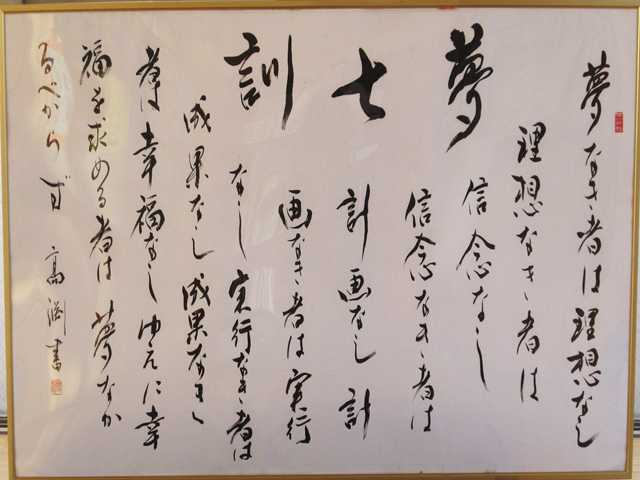 夢七訓
夢なき者は理想なし
理想なき者は
信念なし
信念なき者は
計画なし 計
画なき者は実行
なし 実行なき者は
成果なし 成果なき
者は幸福なし ゆえに幸
福を求める者は 夢なか
るべからず 書